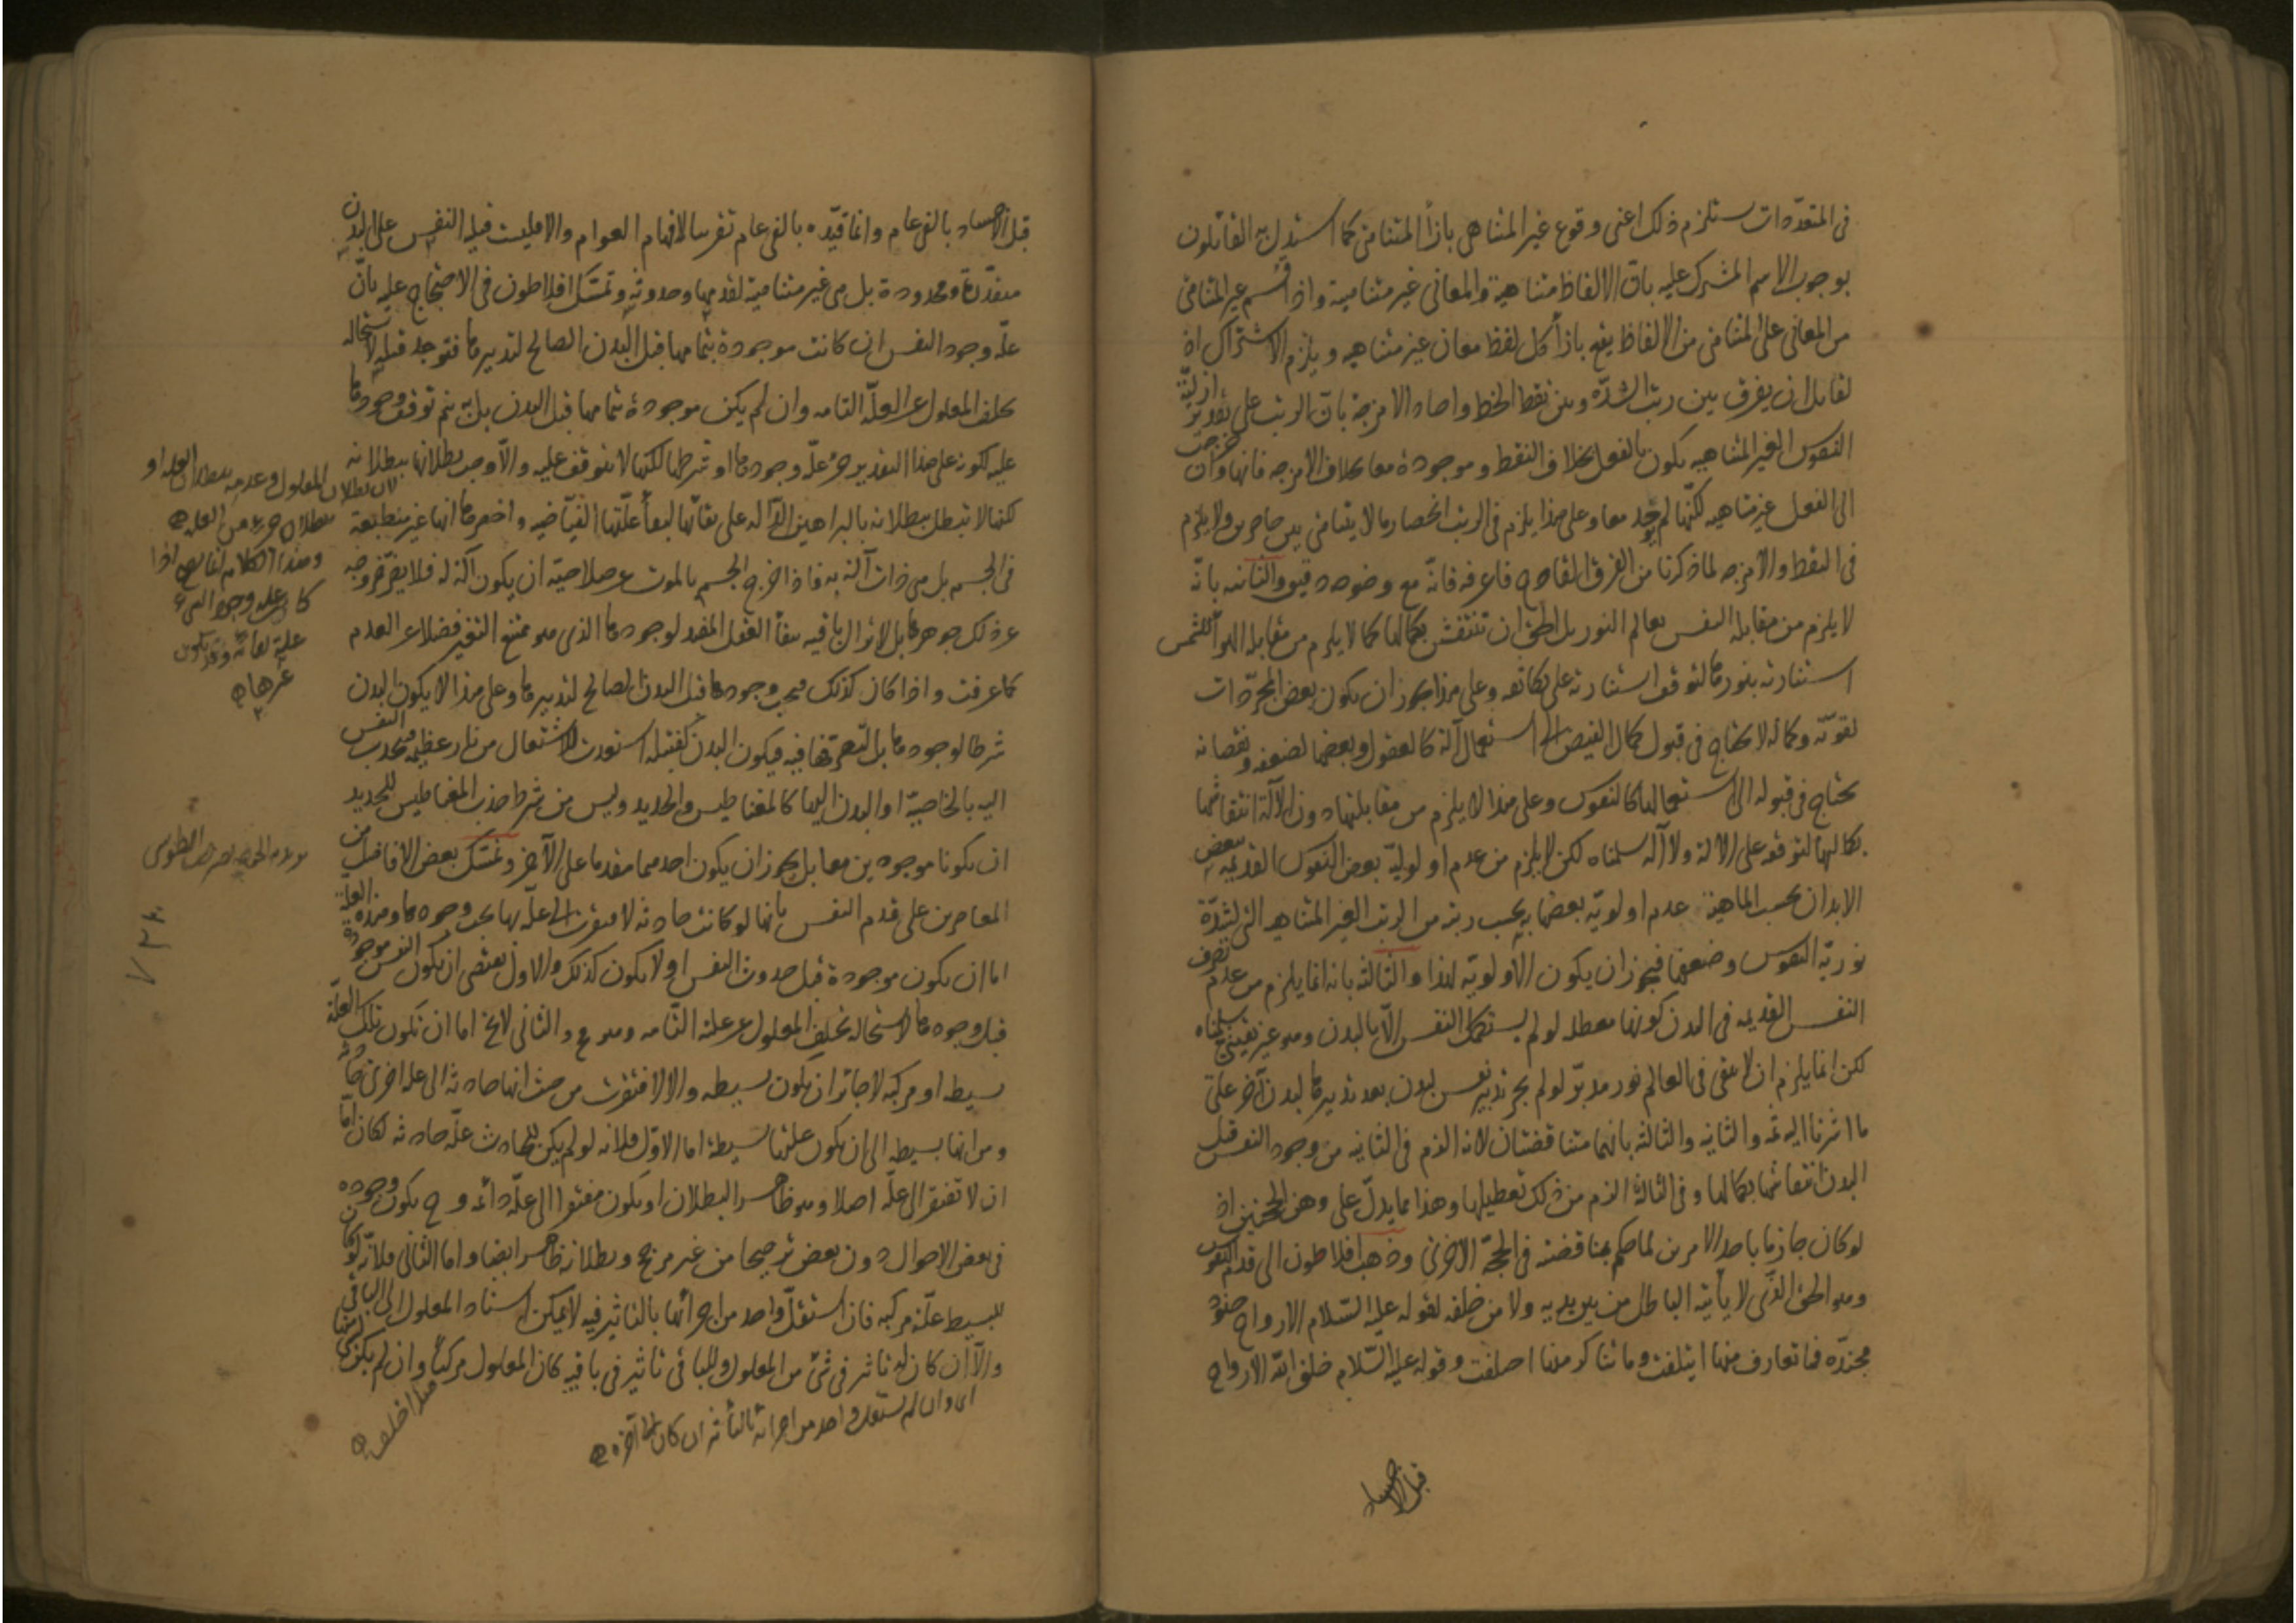 فى المتعدّدات يستلزم ذلك اعنى وقوع غير المتناهى بازأ المتناهى كما استدل به القائلون
بوجوب الاسم المشترك عليه بان الالفاظ متناهية والمعانى غير متناهية واذا قسم غير المتناهى
من المعانى على المتناهى من الالفاظ يقع بازأ كل لفظ معان غير متناهيه ويلزم الاشتراك اذ
لقائل ان يفرق بين رتب الشدّه وبين نقط الخط واحاد الامزجة بانّ الرتب على تقدير ازليّة
النفوس الغير المتناهيه يكون بالفعل بخلاف النقط وموجودة معا بخلاف الامزجه فانها وان خرجت
الى الفعل غير متناهيه لكنّها لم توجد معا وعلى هذا يلزم فى الرتب انحصار ما لا يتناهى بين حاصرين ولا يلزم
فى النقط والامزجه لما ذكرنا من الفرق القادح فاعرفه فانّه مع وضوحه دقيق والثانيه بانّه
لا يلزم من مقابله النفس لعالم النور بل الحق ان تنتقش بكمالها كما لا يلزم من مقابله الهوأ للشمس
استنارته بنورها لتوقف استنارته على تكاثفه وعلى هذا يجوز ان يكون بعض المجرّدات
لقوّته وكماله لا يحتاج فى قبول كمال الفيض الى استعمال آلة كالعقول وبعضها لضعفه ونقصانه
يحتاج فى قبوله الى استعمالها كالنفوس وعلى هذا لا يلزم من مقابلتها دون الآلة انتقاشها
بكمالها لتوقفه على الآلة ولا آلة سلمناه لكن لا يلزم من عدم اولوليّة بعض النفوس القديمه ببعض
الابدان بحسب الماهية عدم اولويّة بعضها به بحسب رتبة من الرتب الغير المتناهيه التى لشدّة
نوريّة النفوس وضعفها فيجوز ان يكون الاولويّه لهذا والثالثة بانه انما يلزم من عدم تصرف
النفس القديمه فى البدن كونها معطله لو لم يستكمل النفس الّا بالبدن وهو غير يقينىّ سلمناه
لكن انما يلزم ان لا يبقى فى العالم نور مدبّر لو لم يجز تدبير نفس لبدن بعد تدبيرها لبدن آخر على
ما اشرنا اليه ثمّ والثانيه والثالثة بانهما متناقضتان لانه الزم فى الثانيه من وجود النفس قبل
البدن انتقاشها بكمالها وفى الثالثة الزم من ذلك تعطيلها وهذا مما يدلّ على وهن الحجّتين اذ
لو كان جازما باحد الامرين لما حكم بمناقضته فى الحجة الاخرى وذهب افلاطون الى قدم النفوس
وهو الحق الذّى لا يأتيه الباطل من بين يديه ولا من خلفه لقوله عليه السّلام الارواح جنود
مجنّدة فما تعارف منها ايتلفت وما تناكر منها اختلفت وقوله عليه السّلام خلق اللّه الارواح
قبل الاجساد
قبل الاجساد بالفى عام وانما قيّده بالفى عام تقريبا لافهام العوام والا فليست قبليه النفس على البدن
متقدّرة ومحدودة بل هى غير متناهية لقدمها وحدوثه وتمسّك افلاطون فى الاحتجاج عليه بانّ
علّه وجود النفس ان كانت موجودة بتمامها قبل البدن الصالح لتدبيرها فتوجد قبله لاستحاله
تخلف المعلول عن العلّه التامه وان لم يكن موجودة بتمامها قبل البدن بل به يتم توقف وجودها
عليه لكونه على هذا التقدير جزء علّه وجودها او شرطها لكنها لا يتوقف عليه والّا وجب بطلانها ببطلانه
لكنها لا تبطل ببطلانه بالبراهين الدّاله على بقائها لبقأ علّتها الفيّاضيه واخصرها انها غير منطبعة
فى الجسم بل هى ذات آلة به فاذا خرج الجسم بالموت عن صلاحيّته ان يكون آلة له فلا يضرّ خروجه
عن ذلك جوهرها بل لا يزال باقيه ببقأ العقل المفيد لوجودها الذى هو ممتنع التغير فضلا عن العدم
كما عرفت واذا كان كذلك فيجب وجودها قبل البدن الصالح لتدبيرها وعلى هذا لا يكون البدن
شرطا لوجودها بل لتصرّفها فيه فيكون البدن كفتيله استعدت للاشتعال من نار عظيمه فينجذب النفس
اليه بالخاصيّة او البدن اليها كالمغناطيس والحديد وليس من شرط جذب المغناطيس للحديد
ان يكونا موجودين معا بل يجوز ان يكون احدهما مقدما على الآخر وتمسّك بعض الافاضل من
المعاصرين على قدم النفس بانها لو كانت حادثه لافتقرت الى علّه بها يجب وجودها وهذه العلّة
اما ان يكون موجودة قبل حدوث النفس او لا يكون كذلك والاول يقتضى ان يكون النفس موجودة
قبل وجودها لاستحاله تخلف المعلول عن علته التّامه وهو مح والثانى لا يخ اما ان تكون تلك العلّة
بسيطه او مركبه لا جائز ان تكون بسيطه والا لافتقرت من حيث انها حادثه الى عله اخرى حادثه
ومن انها بسيطه الى ان يكون علتها بسيطة اما الاوّل فلانه لو لم يكن للحادث علّة حادثه لكان امّا
ان لا تفتقر الى علّه اصلا وهو ظاهر البطلان او يكون مفتقرا الى علّه دائمه وح يكون وجوده
فى بعض الاحوال دون بعض ترجيحا من غير مرجح وبطلانه ظاهر ايضا واما الثانى فلانّه لو كان
للبسيط علّة مركبه فان استقلّ واحد من اجزائها بالتاثير فيه لا يمكن اسناد المعلول الى الباقى
والّا ان كان له تاثير فى شئ من المعلول وللباقى تاثير فى باقيه كان المعلول مركّبا وان لم يكن لشئ
لان بطلان المعلول وعدمه ببطلان العله او
بطلان جزء من العله
وهذا الكلام انما يصح اذا
كان عله وجود الشئ
علة بقائه وقد يكون
غيرها
نصير الطوسى
اى وان لم يستقل واحد من اجزائه بالتأثير ان كان الى آخره